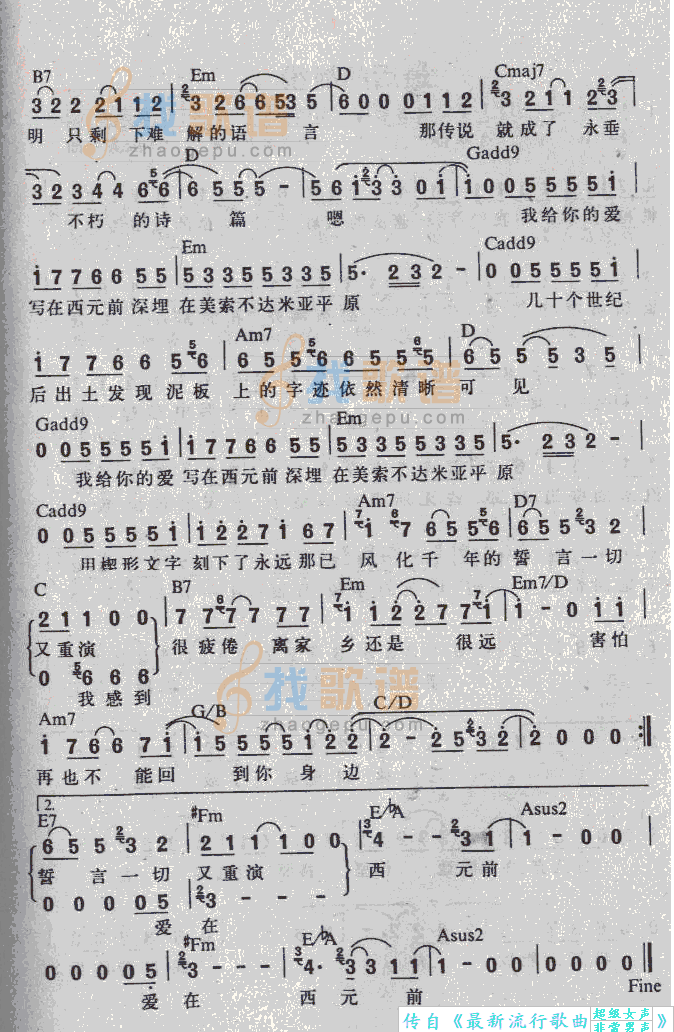 B7 Em D Cmaj7
3 2 2 2 1 1 2 | 2 3 2 6 6 5 5 3 5 | 6 0 0 0 1 1 2 | 2 3 2 1 1 2 2 3
明 只剩 下难 解的语 言 那传说 就成了 永垂
找歌谱
zhaogepu.com
D Gadd9
3 2 3 4 4 6 5 6 | 6 5 5 5 - | 5 6 1 2 3 3 0 1 | 1 0 0 5 5 5 5 1
不朽 的诗 篇 嗯 我给你的爱
Em Cadd9
1 7 7 7 6 6 5 5 | 5 3 3 5 3 3 5 3 3 5 | 5· 2 3 2 - | 0 0 5 5 5 5 1
写在西元前深埋 在美索不达米亚平原 几十个世纪
Am7 D
1 7 7 7 6 6 5 5 6 | 6 5 5 5 6 6 5 5 6 5 | 6 5 5 5 3 5
后出土发现 泥板 上的字迹依然清晰 可 见
找歌谱
zhaogepu.com
Gadd9 Em
0 0 5 5 5 5 5 1 | 1 7 7 7 6 6 5 5 | 5 3 3 5 5 5 3 3 5 | 5· 2 3 2 -
我给你的爱 写在西元前深埋 在美索不达米亚平原
Cadd9 Am7 D7
0 0 5 5 5 5 5 1 | 1 2 2 7 1 6 7 | 7 1 6 7 6 5 5 6 | 6 5 5 2 3 2
用楔形文字 刻下了永远那已 风化千 年的誓 言一切
C B7 Em Em7/D
2 1 1 0 0 | 7 7 6 7 7 7 7 | 7 1 1 2 2 7 7 1 | 1 - 0 1 1
又重演 很疲倦 离家 乡还是 很远 害怕
0 5 6 6 6
我感到
找歌谱
zhaogepu.com
Am7 G/B C/D
1 7 6 6 7 1 | 1 5 5 5 5 1 2 2 | 2 - 2 5 2 3 2 | 2 0 0 0 :‖
再也不 能回 到你 身 边
2.
E7 #Fm E/bA Asus2
6 5 5 2 3 2 | 2 1 1 1 0 0 | 3 4 - - 2 3 1 | 1 - 0 0 |
誓 言一切 又重演 西 元前
0 0 0 0 5 | 2 3 - - -
爱 在
#Fm E/bA Asus2
0 0 0 0 5 | 2 3 - - - | 3 4· 2 3 3 1 1 | 1 - 0 0 | 0 0 0 0 ‖
爱 在 西 元 前 Fine
传自《最新流行歌曲超级女声非常男声》